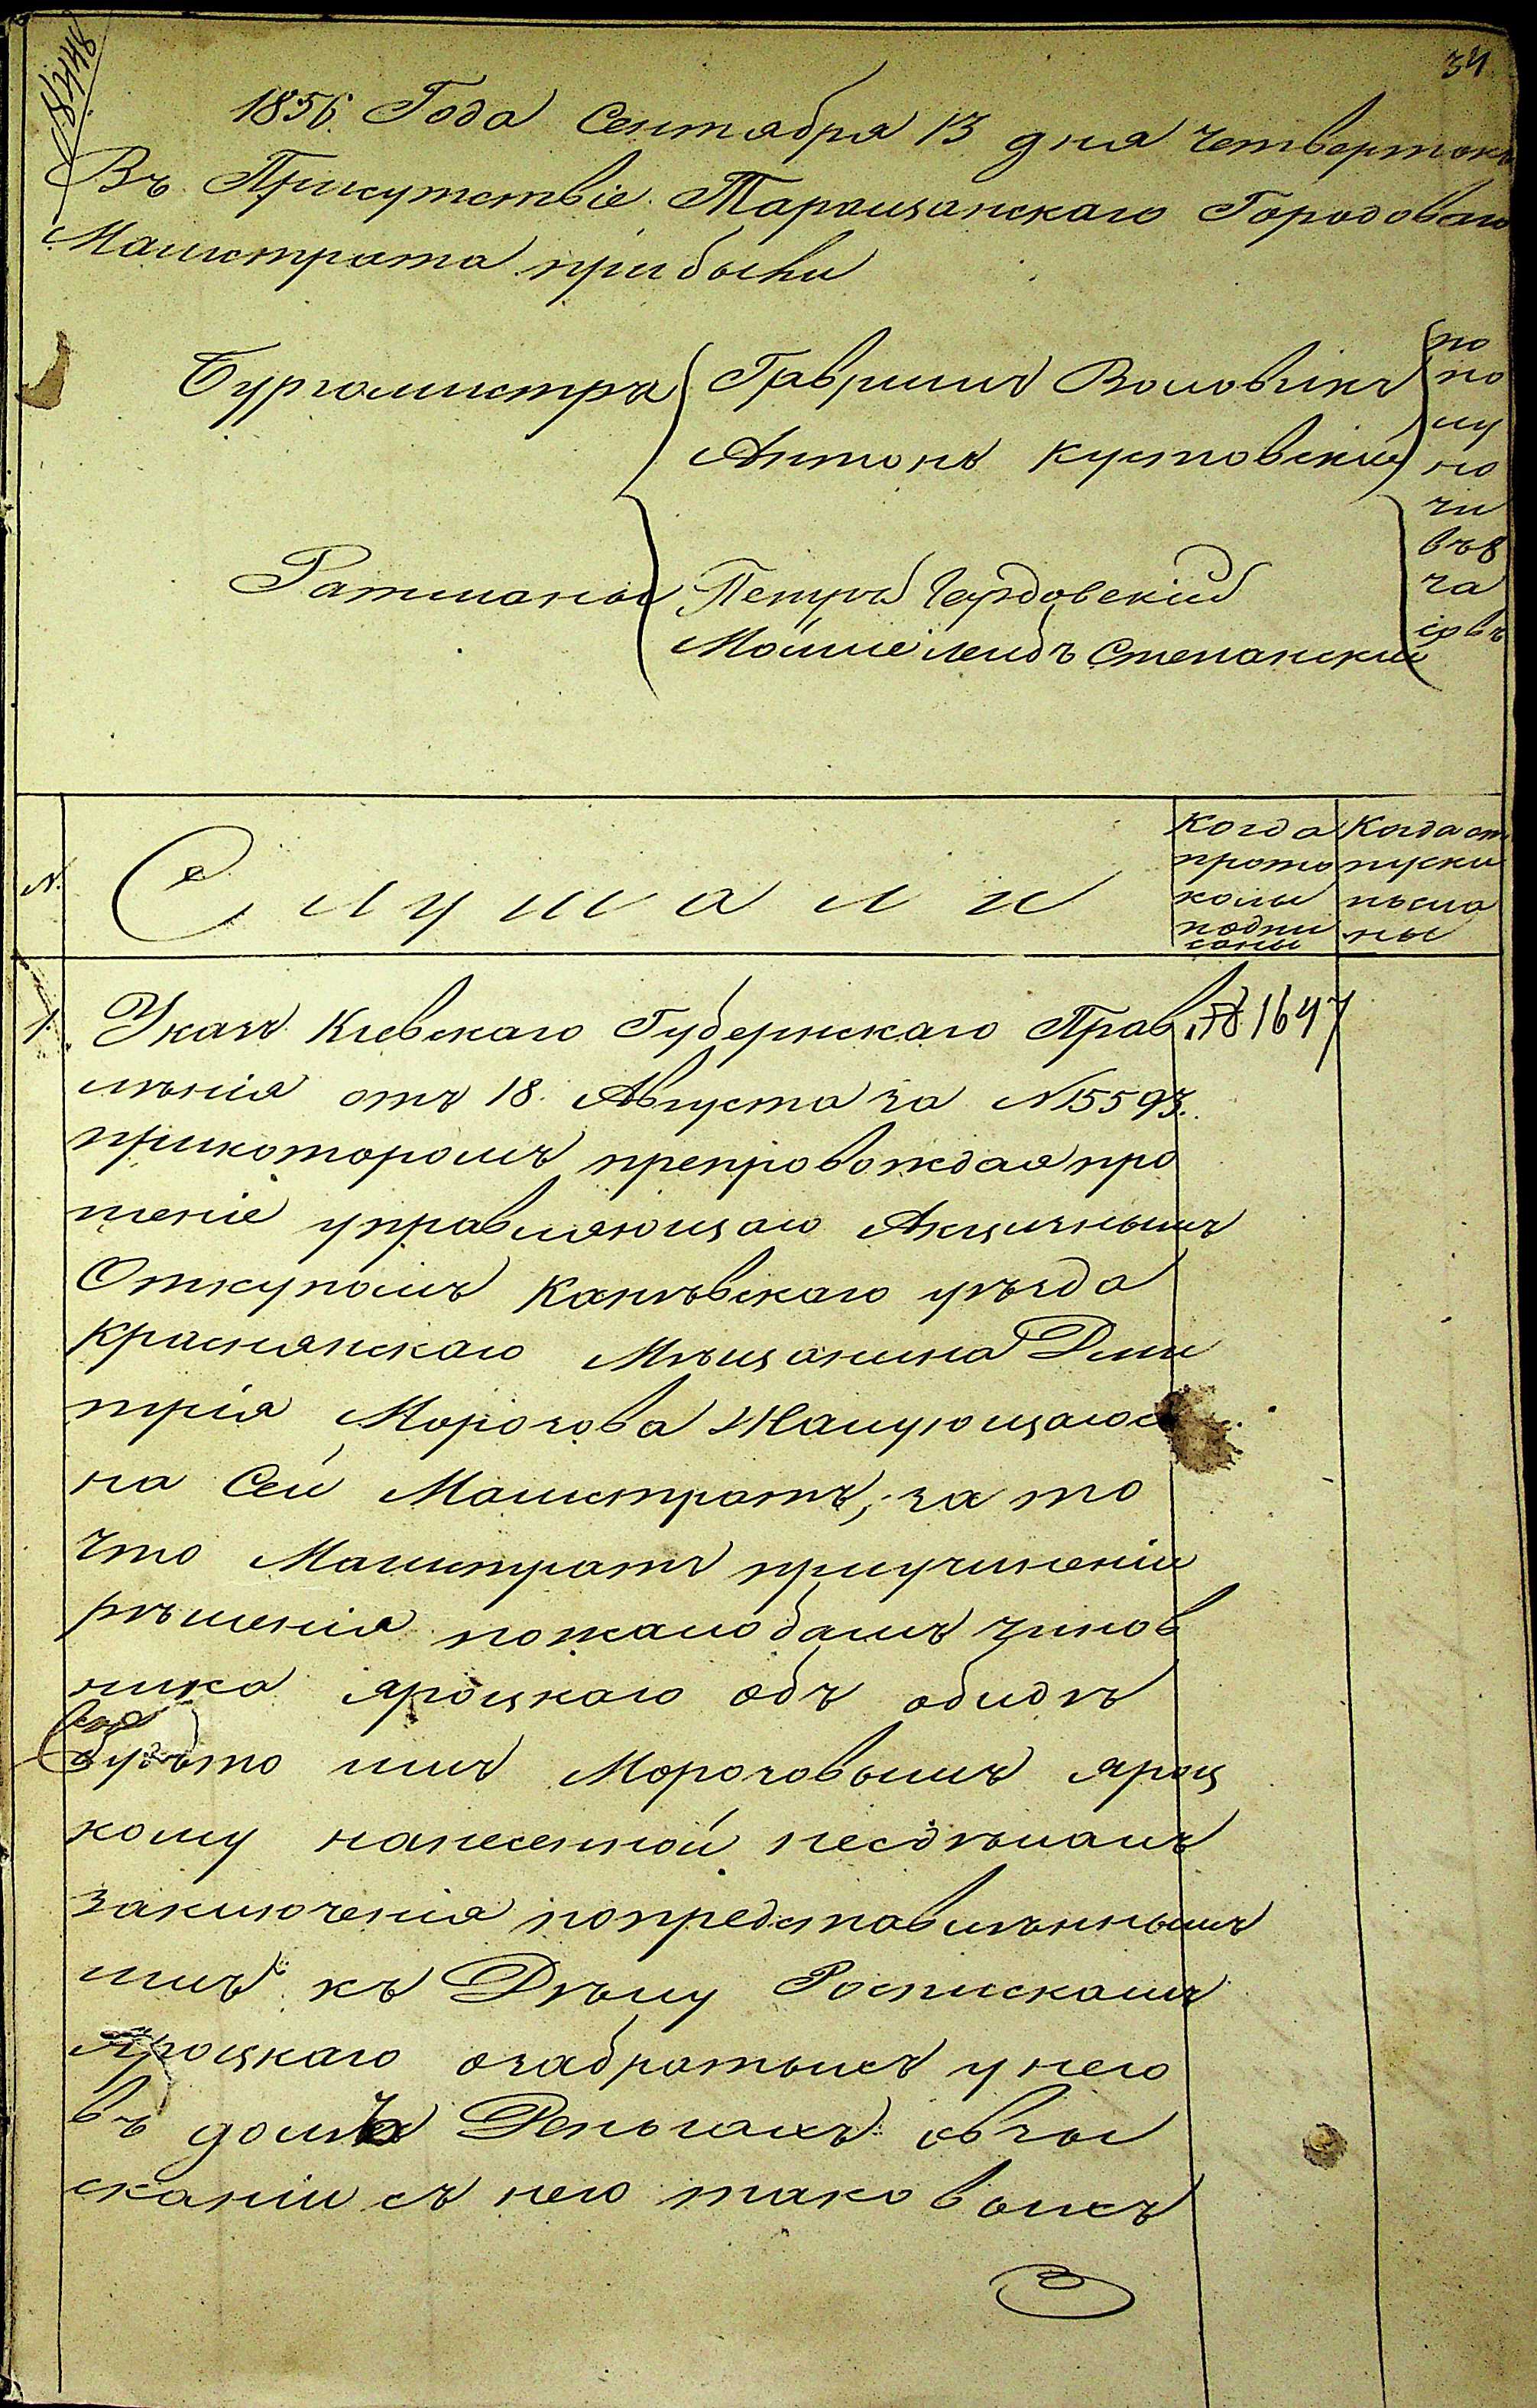 34
1856. Года Сентября 13 дня четвертокъ
Въ Присутствіе Таращанскаго Городоваго
Магистрата прибыли
Бургомистра Гавриилъ Воловикъ
Антонъ Кустовскій
по
по
лу
но
чи
въ 8
ча
совъ
Ратманы Петръ
Мошко лейбъ Степанскій
N.
Слушали
Когда
прото
колы
подпи
саны
Когда от
пуски
посла
ны
1. Указъ Кіевскаго Губернскаго Прав
№ 1647
лѣнія отъ 18. Августа за N 15593.
прикоторомъ препровождая про
шеніе управляющаго Акцизнымъ
Откупомъ Каневскаго уѣзда
Краснянскаго Мѣщанина Дми
трія Морозова Жалующагося
на Сей Магистратъ, за то
что Магистратъ приучиненіи
рѣшенія пожалобамъ чинов
ника Яроцкаго объ обидѣ
будьто имъ Морозовымъ Яроц
кому нанесенной несдѣлалъ
заключенія попредставлѣннымъ
имъ къ Дѣлу Роспискамъ
Яроцкаго озабратыхъ унего
въ домѣ Деньгахъ овзы
сканіи съ него таковыхъ